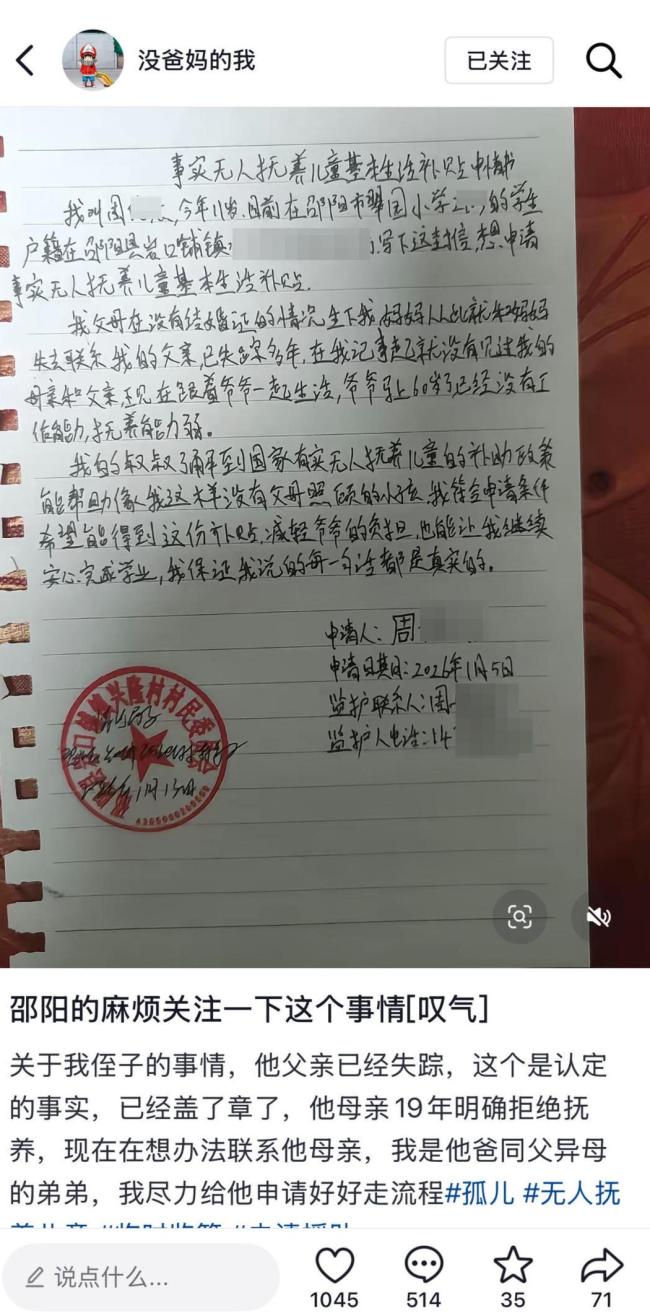 没爸妈的我
已关注
事实无人抚养儿童基本生活补贴申请书
我叫周 ,今年11岁.目前在邵阳市翠园小学 的学生
户籍在邵阳县岩口铺镇 写下这封信,想申请
事实无人抚养儿童基本生活补贴.
我父母在没有结婚证的情况生下我,妈妈从此就和妈妈
失去联系.我的父亲,已失踪多年,在我记事起就没有见过我的
母亲和父亲,现在跟着爷爷一起生活,爷爷马上60岁了已经没有工
作能力,抚养能力弱。
我的叔叔了解到国家有实无人抚养儿童的补助政策
能帮助像我这样没有父母照顾的小孩,我符合申请条件
希望能得到这份补贴,减轻爷爷的负担,也能让我继续
安心完成学业,我保证我说的每一句话都是真实的。
申请人:周
申请日期:2026年1月5日
监护联系人:周
监护人电话:14
兴隆村村民委员会
1月13日
邵阳的麻烦关注一下这个事情[叹气]
关于我侄子的事情，他父亲已经失踪，这个是认定
的事实，已经盖了章了，他母亲19年明确拒绝抚
养，现在在想办法联系他母亲，我是他爸同父异母
的弟弟，我尽力给他申请好好走流程#孤儿 #无人抚
说点什么...
1045
514
35
71